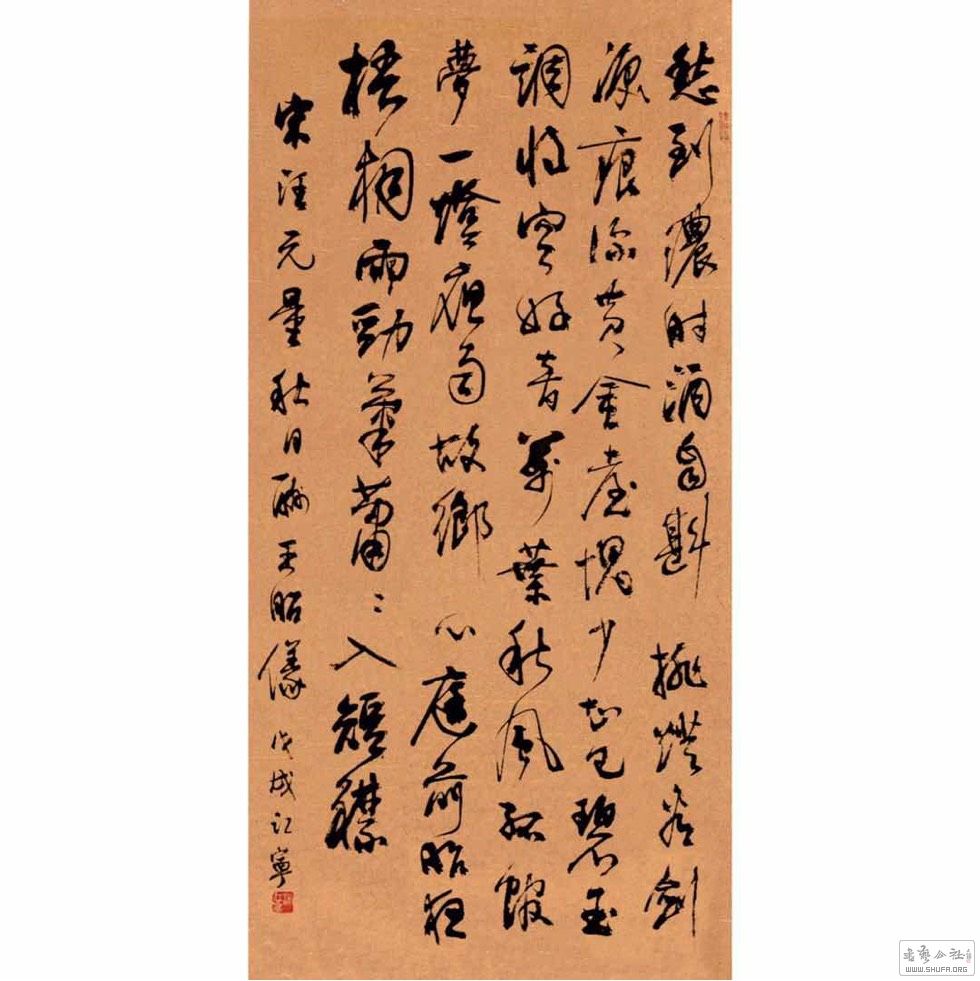 愁到濃时酒自斟挑燈看劍
淚痕深黄金臺愧少知己碧玉
調將空好音萬葉秋風孤館
夢一燈夜雨故鄉心庭前昨夜
梧桐雨勁氣蕭〻入短襟
宋汪元量秋日酬王昭儀 戊戌江寧
书艺公社
WWW.SHUFA.ORG